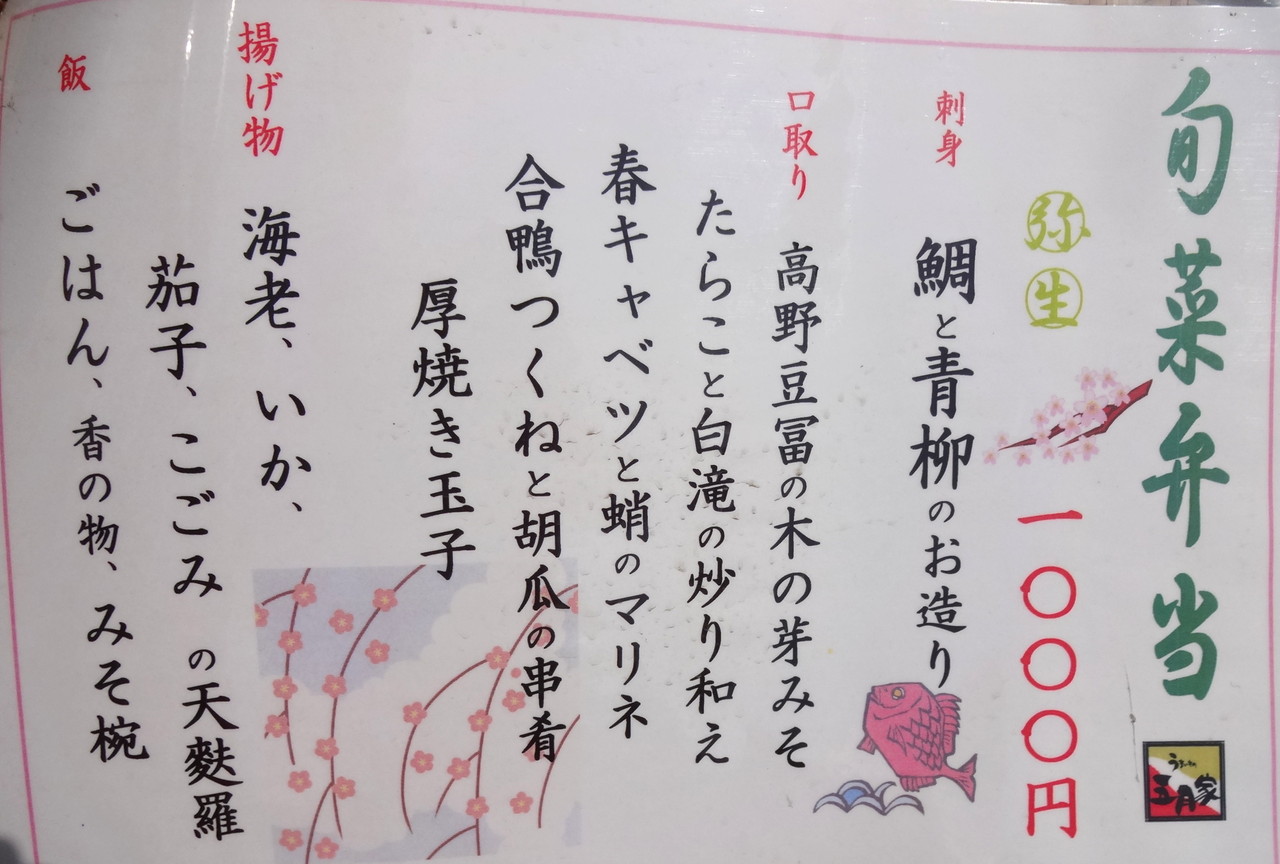 旬菜弁当
弥生
一〇〇〇円
刺身
鯛と青柳のお造り
口取り
高野豆冨の木の芽みそ
たらこと白滝の炒り和え
春キャベツと蛸のマリネ
合鴨つくねと胡瓜の串肴
厚焼き玉子
揚げ物
海老、いか、
茄子、こごみ
の天麩羅
飯
ごはん、香の物、みそ椀
五月家